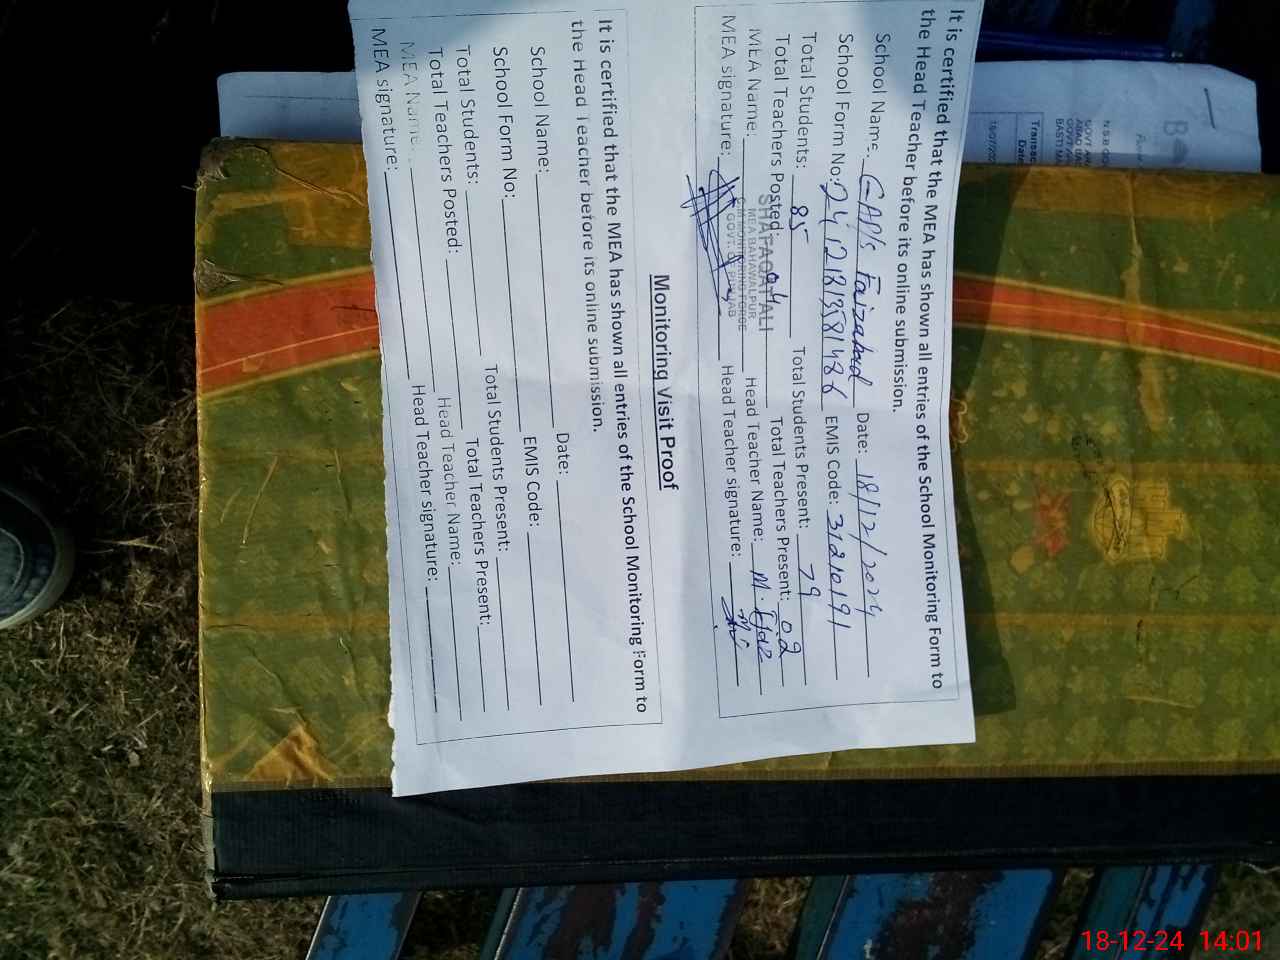 It is certified that the MEA has shown all entries of the School Monitoring Form to
the Head Teacher before its online submission.
School Name: GAP/s Faizabad Date: 18/12/2024
School Form No: EMIS Code: 31210191
Total Students: 85 Total Students Present: 79
Total Teachers Posted: 04 Total Teachers Present: 02
MEA Name: Head Teacher Name: M. Ejaz
MEA signature: Head Teacher signature:
SHAFAQAT ALI
MEA BAHAWALPUR
CM MONITORING FORCE
GOVT. OF PUNJAB
Monitoring Visit Proof
It is certified that the MEA has shown all entries of the School Monitoring Form to
the Head Teacher before its online submission.
School Name: Date:
School Form No: EMIS Code:
Total Students: Total Students Present:
Total Teachers Posted: Total Teachers Present:
MEA Name: Head Teacher Name:
MEA signature: Head Teacher signature:
18-12-24 14:01